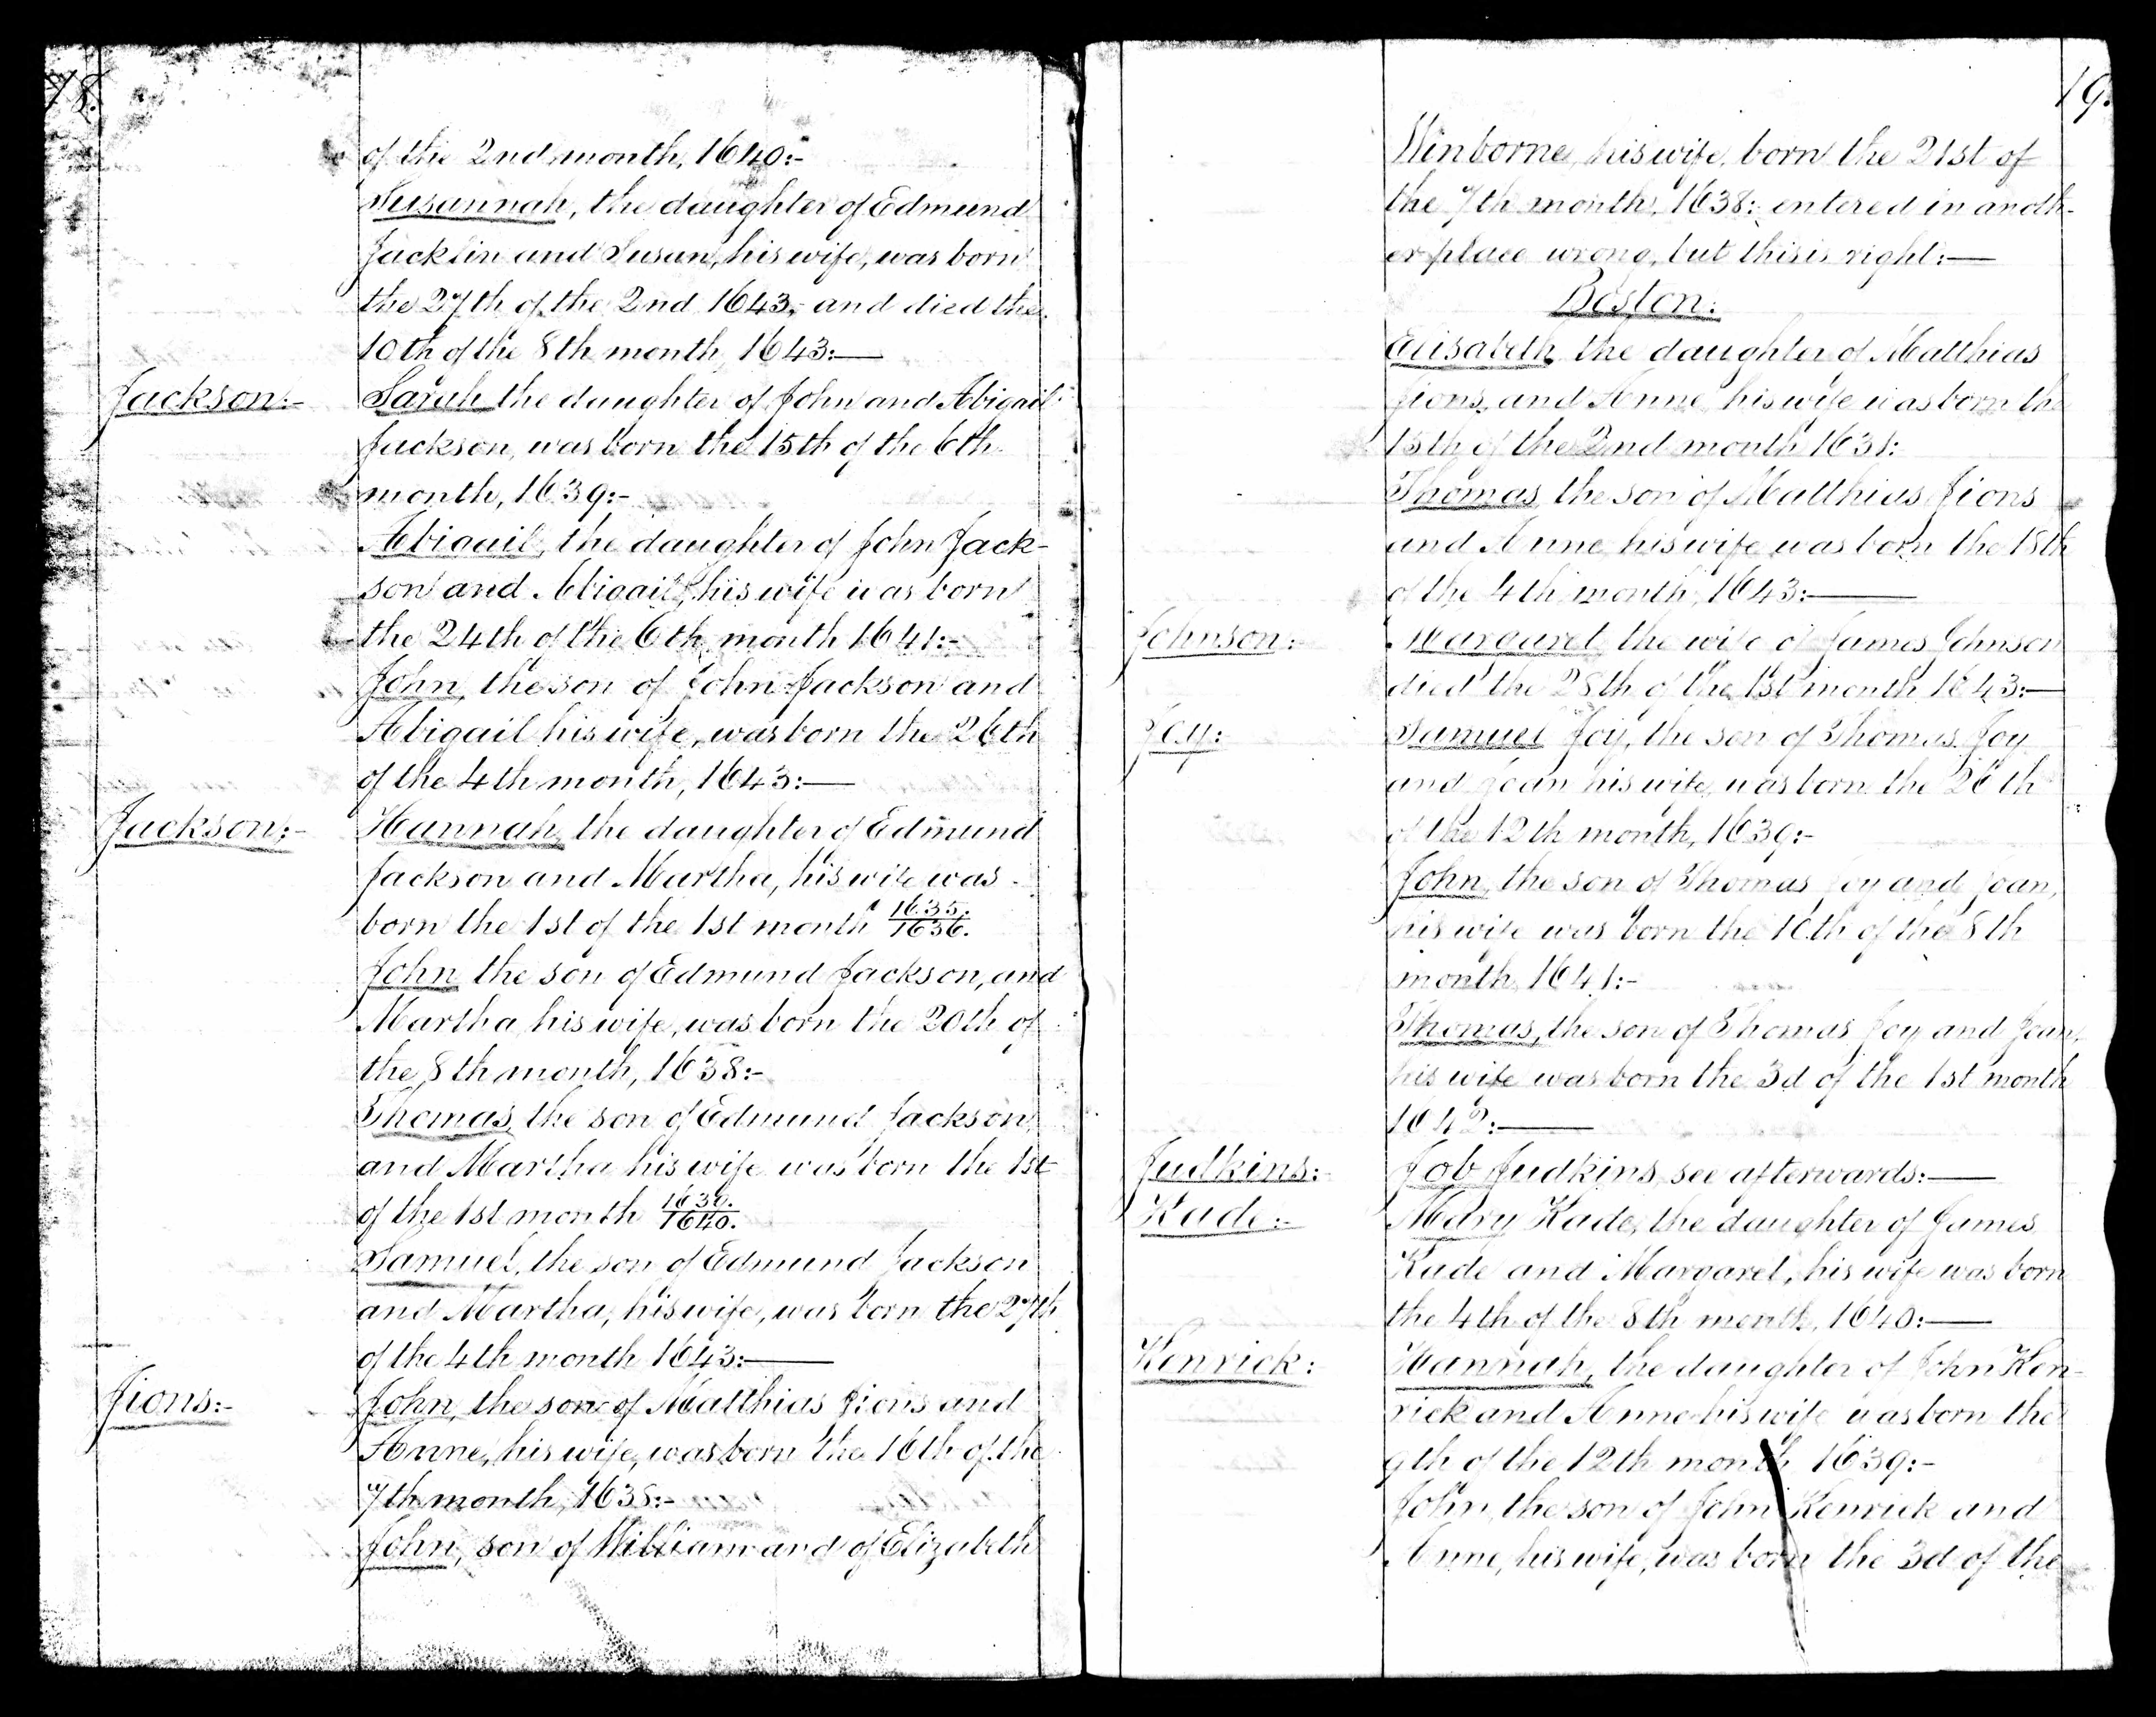 78.
of the 2nd month, 1640:-
Susannah, the daughter of Edmund
Jacklin and Susan, his wife, was born
the 27th of the 2nd 1643, and died the
10th of the 8th month, 1643:—
Jackson:-
Sarah the daughter of John and Abigail
Jackson, was born the 15th of the 6th
month, 1639:-
Abigail, the daughter of John Jack-
son and Abigail, his wife was born
the 24th of the 6th month 1641:-
John, the son of John Jackson and
Abigail his wife, was born the 26th
of the 4th month, 1643:—
Jackson:-
Hannah, the daughter of Edmund
Jackson and Martha, his wife was
born the 1st of the 1st month 1635./1636.
John the son of Edmund Jackson, and
Martha, his wife, was born the 20th of
the 8th month, 1638:-
Thomas, the son of Edmund Jackson,
and Martha his wife was born the 1st
of the 1st month 1639./1640.
Samuel, the son of Edmund Jackson
and Martha, his wife, was born the 27th
of the 4th month 1643:—
Jions:-
John, the son of Matthias Jions and
Anne, his wife, was born the 16th of the
7th month, 1638:-
John, son of William and of Elizabeth
19.
Winborne, his wife, born the 21st of
the 7th month, 1638: entered in anoth-
er place wrong, but this is right:—
Boston:
Elisabeth the daughter of Matthias
Jions, and Anne his wife was born the
15th of the 2nd month 1631:
Thomas the son of Matthias Jions
and Anne his wife was born the 18th
of the 4th month, 1643:—
Johnson:-
Margaret, the wife of James Johnson
died the 28th of the 1st month 1643:—
Joy:
Samuel Joy, the son of Thomas Joy
and Joan his wife, was born the 26th
of the 12th month, 1639:-
John, the son of Thomas Joy and Joan,
his wife was born the 10th of the 8th
month, 1641:-
Thomas, the son of Thomas Joy and Joan,
his wife was born the 3d of the 1st month
1642:—
Judkins:-
Job Judkins, see afterwards:—
Kade:-
Mary Kade, the daughter of James
Kade and Margaret, his wife was born
the 4th of the 8th month, 1640:—
Kenrick:
Hannah, the daughter of John Ken-
rick and Anne his wife was born the
9th of the 12th month 1639:-
John, the son of John Kenrick and
Anne, his wife, was born the 3d of the